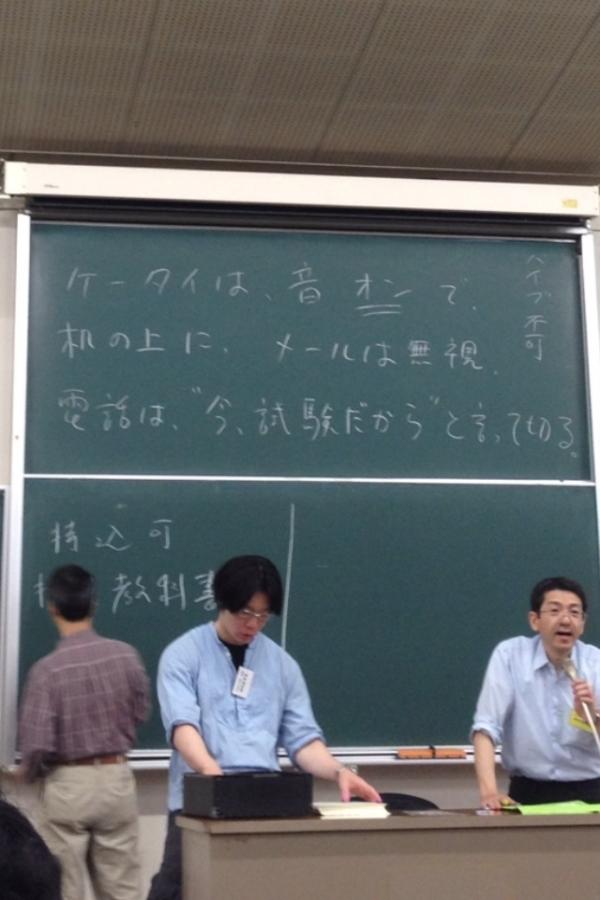 ケータイは、音オンで、
バイブ不可
机の上に、メールは無視、
電話は、"今、試験だから"と言って切る。
持込可
教科書